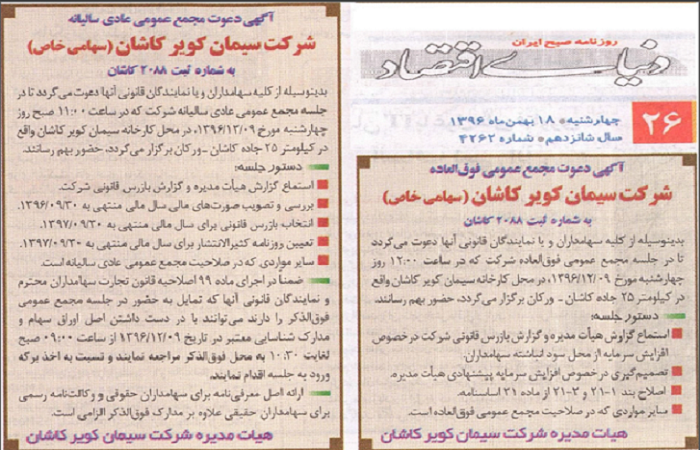 روزنامه صبح ایران
دنیای اقتصاد
۲۶
چهارشنبه ● ۱۸ بهمن ماه ۱۳۹۶
سال شانزدهم ● شماره ۴۲۶۲
آگهی دعوت مجمع عمومی فوق‌العاده
شرکت سیمان کویر کاشان (سهامی خاص)
به شماره ثبت ۲۰۸۸ کاشان
بدینوسیله از کلیه سهامداران و یا نمایندگان قانونی آنها دعوت می‌گردد
تا در جلسه مجمع عمومی فوق‌العاده شرکت که در ساعت ۱۲:۰۰ روز
چهارشنبه مورخ ۱۳۹۶/۱۲/۰۹، در محل کارخانه سیمان کویر کاشان واقع
در کیلومتر ۲۵ جاده کاشان - ورکان برگزار می‌گردد، حضور بهم رسانند.
دستور جلسه:
استماع گزارش هیأت مدیره و گزارش بازرس قانونی شرکت در خصوص
افزایش سرمایه از محل سود انباشته سهامداران.
تصمیم‌گیری در خصوص افزایش سرمایه پیشنهادی هیأت مدیره.
اصلاح بند ۱-۲۱ و ۳-۲۱ از ماده ۲۱ اساسنامه.
سایر مواردی که در صلاحیت مجمع عمومی فوق‌العاده است.
هیات مدیره شرکت سیمان کویر کاشان
آگهی دعوت مجمع عمومی عادی سالیانه
شرکت سیمان کویر کاشان (سهامی خاص)
به شماره ثبت ۲۰۸۸ کاشان
بدینوسیله از کلیه سهامداران و یا نمایندگان قانونی آنها دعوت می‌گردد تا در
جلسه مجمع عمومی عادی سالیانه شرکت که در ساعت ۱۱:۰۰ صبح روز
چهارشنبه مورخ ۱۳۹۶/۱۲/۰۹، در محل کارخانه سیمان کویر کاشان واقع
در کیلومتر ۲۵ جاده کاشان - ورکان برگزار می‌گردد، حضور بهم رسانند.
دستور جلسه:
استماع گزارش هیأت مدیره و گزارش بازرس قانونی شرکت.
بررسی و تصویب صورت‌های مالی سال مالی منتهی به ۱۳۹۶/۰۹/۳۰.
انتخاب بازرس قانونی برای سال مالی منتهی به ۱۳۹۷/۰۹/۳۰.
تعیین روزنامه کثیرالانتشار برای سال مالی منتهی به ۱۳۹۷/۰۹/۳۰.
سایر مواردی که در صلاحیت مجمع عمومی عادی سالیانه است.
ضمناً در اجرای ماده ۹۹ اصلاحیه قانون تجارت سهامداران محترم
و نمایندگان قانونی آنها که تمایل به حضور در جلسه مجمع عمومی
فوق‌الذکر را دارند می‌توانند با در دست داشتن اصل اوراق سهام و
مدارک شناسایی معتبر در تاریخ ۱۳۹۶/۱۲/۰۹ از ساعت ۰۹:۰۰ صبح
لغایت ۱۰:۳۰ به محل فوق‌الذکر مراجعه نمایند و نسبت به اخذ برگه
ورود به جلسه اقدام نمایند.
ارائه اصل معرفی‌نامه برای سهامداران حقوقی و وکالت‌نامه رسمی
برای سهامداران حقیقی علاوه بر مدارک فوق‌الذکر الزامی است.
هیات مدیره شرکت سیمان کویر کاشان